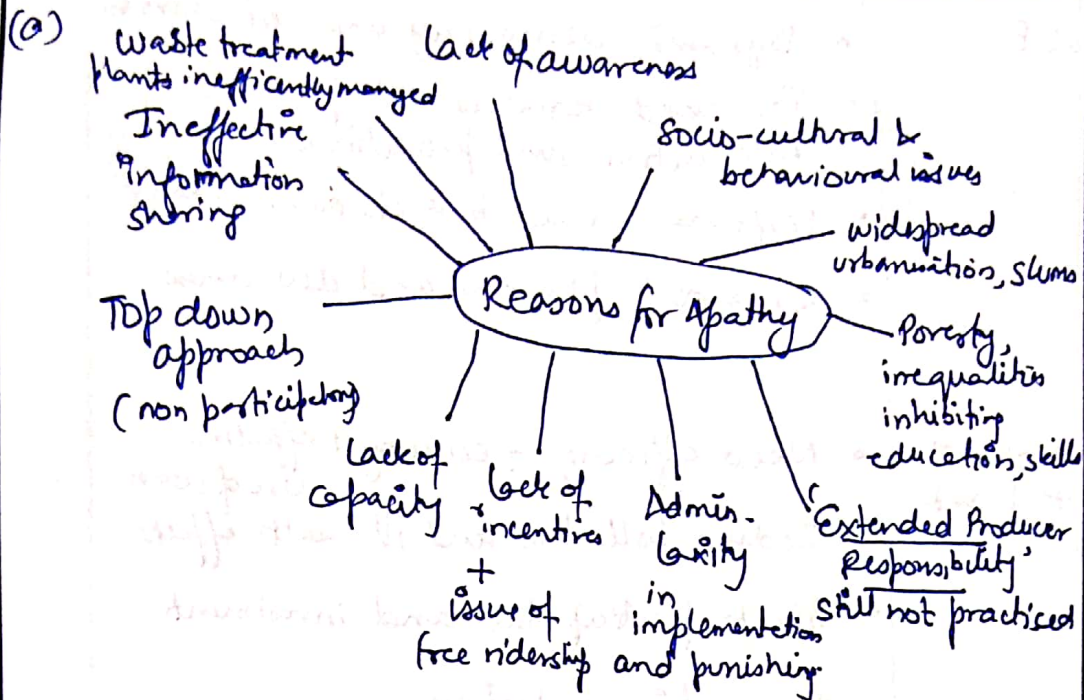 (a)
Waste treatment
plants inefficently manged
Lack of awareness
Ineffective
information
sharing
Socio-cultural &
behavioural issues
widespread
urbanisation, slums
Top down
approach
(non participatory)
Reasons for Apathy
Poverty,
inequalities
inhibiting
education, skills
Lack of
capacity
lack of
incentives
+
issue of
free ridership
Admin.
laxity
in
implementation
and punishing
'Extended Producer
Responsibility'
still not practised